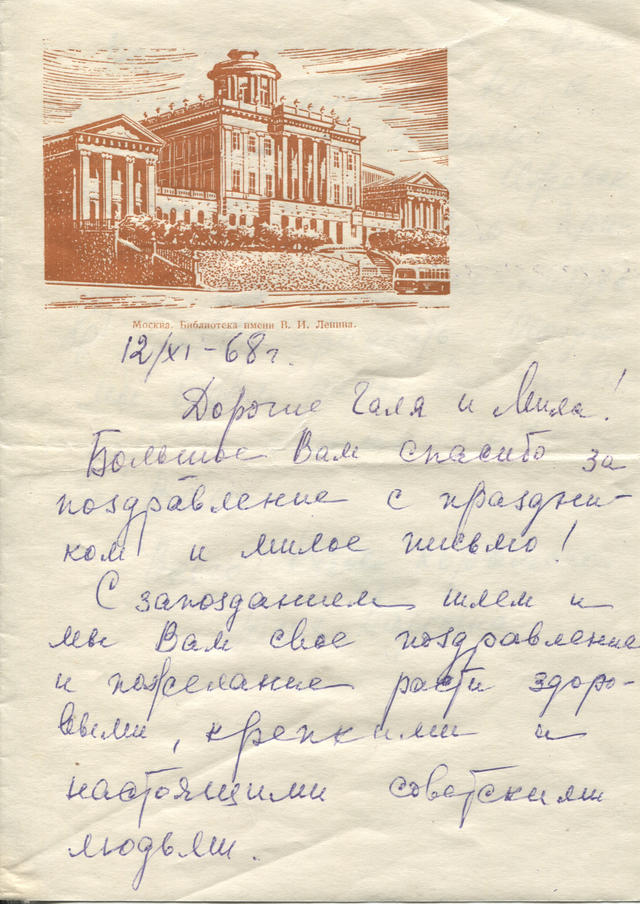 Москва. Библиотека имени В. И. Ленина.
12/XI-68г.
Дорогие Галя и Мила!
Большое Вам спасибо за
поздравление с праздни-
ком и милое письмо!
С запозданием шлем и
мы Вам свое поздравление
и пожелание расти здоро-
выми, крепкими и
настоящими советскими
людьми.